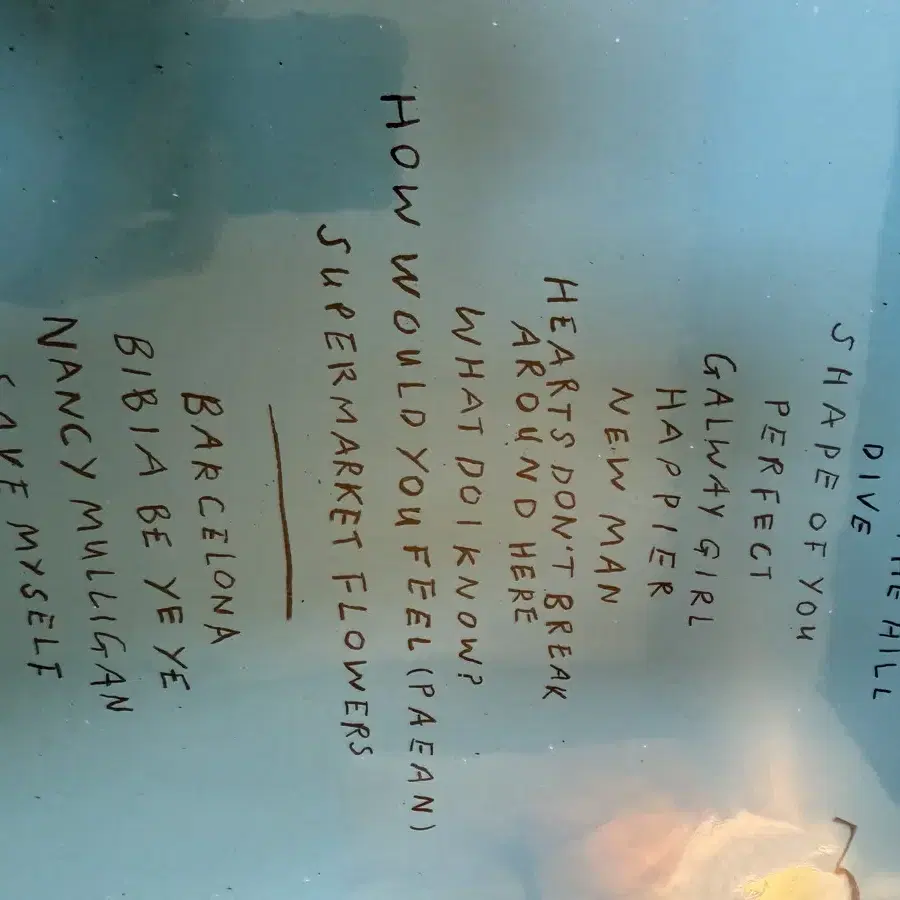 HE HILL
DIVE
SHAPE OF YOU
PERFECT
GALWAY GIRL
HAPPIER
NEW MAN
HEARTS DON'T BREAK
AROUND HERE
WHAT DO I KNOW?
HOW WOULD YOU FEEL (PAEAN)
SUPERMARKET FLOWERS
BARCELONA
BIBIA BE YE YE
NANCY MULLIGAN
SAVE MYSELF